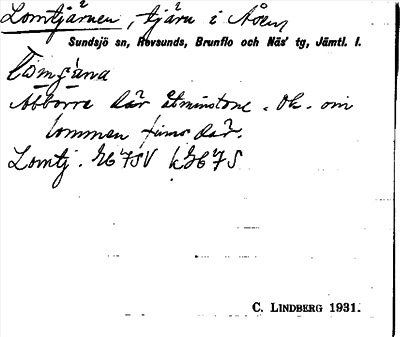 Lomtjärnen, tjärn i Åsen
Sundsjö sn, Revsunds, Brunflo och Näs tg, Jämtl. l.
Abborre där åtminstone. Ok. om
lommen finns där.
Lomtj. GC 7SV kGC 7S
C. LINDBERG 1931.